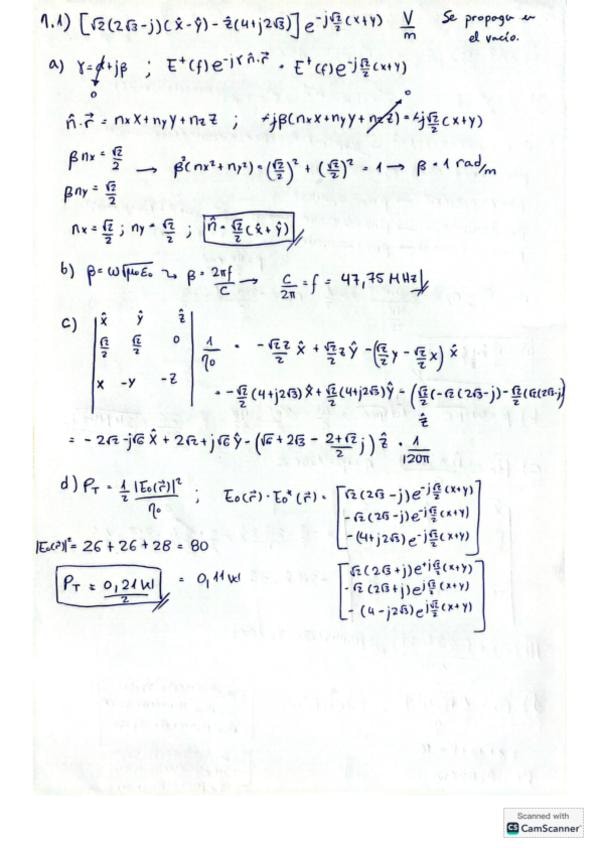 1.1) [√2(2√3-j)(x̂-ŷ) - ẑ(4+j2√3)] e^(-j√2/2(x+y)) V/m Se propaga en el vacío.
a) γ=α+jβ ; E⁺(f)e^(-jγn̂·r⃗) = E⁺(f)e^(-j√2/2(x+y))
0
0
n̂·r⃗ = nxX+nyY+nzZ ; -jβ(nxX+nyY+nzZ)=-j√2/2(x+y)
βnx = √2/2
→ β²(nx²+ny²)=(√2/2)²+(√2/2)²=1 → β=1 rad/m
βny = √2/2
nx=√2/2 ; ny=√2/2 ; n̂=√2/2(x̂+ŷ)
b) β=ω√μ₀ε₀ → β=2πf/c → c/2π=f= 47,75 MHz
c) |x̂ ŷ ẑ|
|√2/2 √2/2 0| 1/η0 = -√2z/2 x̂ + √2/2 z ŷ -(√2/2 y - √2/2 x) x̂
|x -y -z|
= -√2/2(4+j2√3)x̂+√2/2(4+j2√3)ŷ=(√2/2(-√2(2√3-j)-√2/2(√2(2√3-j)
ẑ
= -2√2-j√6 x̂ + 2√2+j√6 ŷ -(√6+2√3 - 2+√2/2 j) ẑ · 1/120π
d) PT=1/2 |E0(r⃗)|²/η0 ; E0(r⃗)·E0*(r⃗)= [√2(2√3-j)e^(-j√2/2(x+y))
-√2(2√3-j)e^(-j√2/2(x+y))
-(4+j2√3)e^(-j√2/2(x+y))]
|E0(r⃗)|²= 26+26+28 = 80
PT = 0,21W/2 = 0,11W
[√2(2√3+j)e^(+j√2/2(x+y))
-√2(2√3+j)e^(j√2/2(x+y))
-(4-j2√3)e^(j√2/2(x+y))]
Scanned with
CS CamScanner